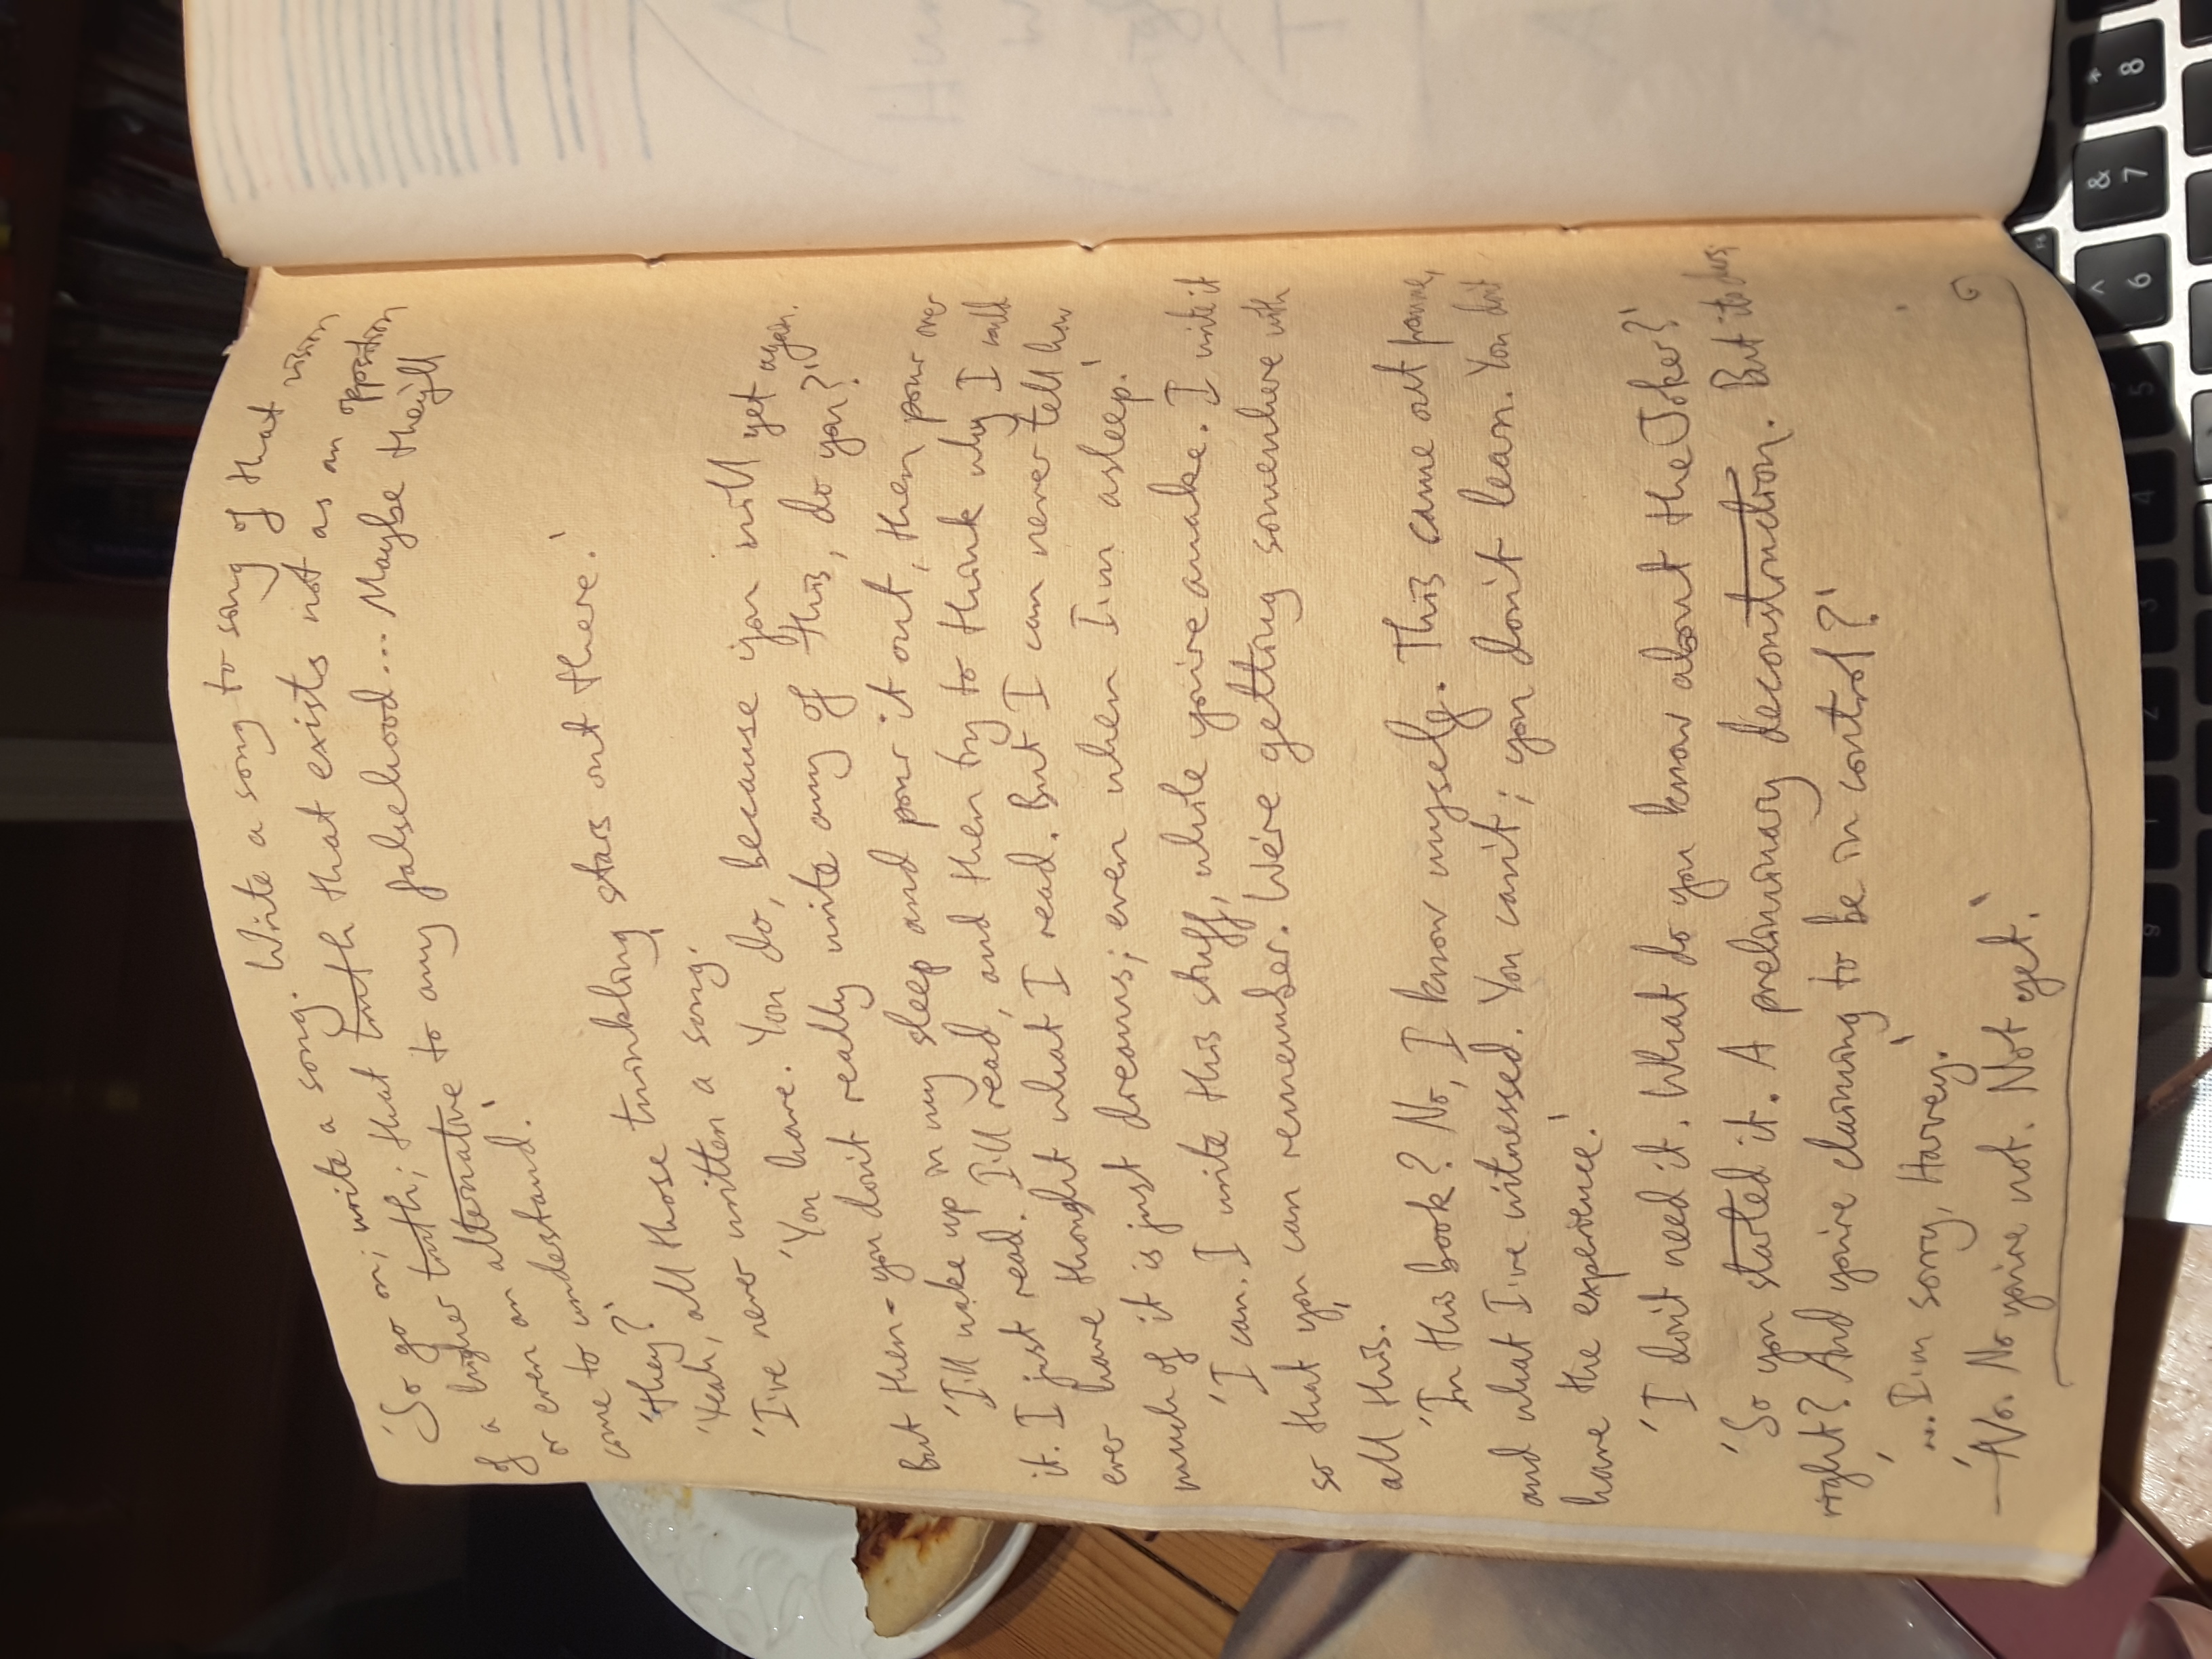 'So go on; write a song. Write a song to sing of that vision
of a higher truth; that truth that exists not as an opposition
or even an alternative to any falsehood... Maybe they'll
come to understand.'
'They?'
'Yeah, all those twinkling stars out there.'
'I've never written a song.'
'You have. You do, because you will yet again.
But then - you don't really write any of this, do you?'
'I'll wake up in my sleep and pour it out, then pour over
it. I just read. I'll read, and then try to think why I would
ever have thought what I read. But I can never tell how
much of it is just dreams; even when I'm asleep.'
'I can. I write this stuff, while you're awake. I write it
so that you can remember. We're getting somewhere with
all this.'
'In this book? No, I know myself. This came out from me,
and what I've witnessed. You can't; you don't learn. You don't
have the experience.'
'I don't need it. What do you know about the Joker?'
'So you started it. A preliminary deconstruction. But
right? And you're claiming to be in control?'
'... I'm sorry, Harvey.'
—'No. No you're not. Not yet.'
^ 6
& 7
* 8
1 2 3 4 5